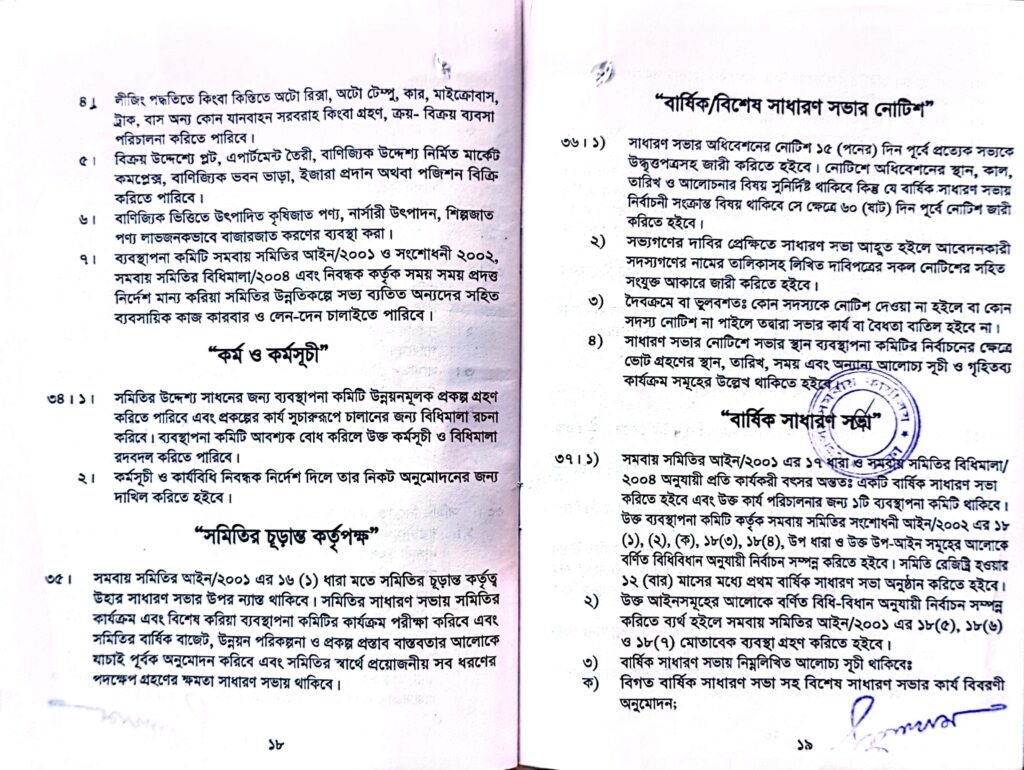 ৪। লীজিং পদ্ধতিতে কিংবা কিস্তিতে অটো রিক্সা, অটো টেম্পু, কার, মাইক্রোবাস,
ট্রাক, বাস অন্য কোন যানবাহন সরবরাহ কিংবা গ্রহণ, ক্রয়- বিক্রয় ব্যবসা
পরিচালনা করিতে পারিবে।
৫। বিক্রয় উদ্দেশ্যে প্লট, এপার্টমেন্ট তৈরী, বাণিজ্যিক উদ্দেশ্য নির্মিত মার্কেট
কমপ্লেক্স, বাণিজ্যিক ভবন ভাড়া, ইজারা প্রদান অথবা পজিশন বিক্রি
করিতে পারিবে।
৬। বাণিজ্যিক ভিত্তিতে উৎপাদিত কৃষিজাত পণ্য, নার্সারী উৎপাদন, শিল্পজাত
পণ্য লাভজনকভাবে বাজারজাত করণের ব্যবস্থা করা।
৭। ব্যবস্থাপনা কমিটি সমবায় সমিতির আইন/২০০১ ও সংশোধনী ২০০২,
সমবায় সমিতির বিধিমালা/২০০৪ এবং নিবন্ধক কর্তৃক সময় সময় প্রদত্ত
নির্দেশ মান্য করিয়া সমিতির উন্নতিকল্পে সভ্য ব্যতিত অন্যদের সহিত
ব্যবসায়িক কাজ কারবার ও লেন-দেন চালাইতে পারিবে।
“কর্ম ও কর্মসূচী”
৩৪। ১। সমিতির উদ্দেশ্য সাধনের জন্য ব্যবস্থাপনা কমিটি উন্নয়নমূলক প্রকল্প গ্রহণ
করিতে পারিবে এবং প্রকল্পের কার্য সুচারুরূপে চালানের জন্য বিধিমালা রচনা
করিবে। ব্যবস্থাপনা কমিটি আবশ্যক বোধ করিলে উক্ত কর্মসূচী ও বিধিমালা
রদবদল করিতে পারিবে।
২। কর্মসূচী ও কার্যবিধি নিবন্ধক নির্দেশ দিলে তার নিকট অনুমোদনের জন্য
দাখিল করিতে হইবে।
“সমিতির চূড়ান্ত কর্তৃপক্ষ”
৩৫। সমবায় সমিতির আইন/২০০১ এর ১৬ (১) ধারা মতে সমিতির চূড়ান্ত কর্তৃত্ব
উহার সাধারণ সভার উপর ন্যাস্ত থাকিবে। সমিতির সাধারণ সভায় সমিতির
কার্যক্রম এবং বিশেষ করিয়া ব্যবস্থাপনা কমিটির কার্যক্রম পরীক্ষা করিবে এবং
সমিতির বার্ষিক বাজেট, উন্নয়ন পরিকল্পনা ও প্রকল্প প্রস্তাব বাস্তবতার আলোকে
যাচাই পূর্বক অনুমোদন করিবে এবং সমিতির স্বার্থে প্রয়োজনীয় সব ধরণের
পদক্ষেপ গ্রহণের ক্ষমতা সাধারণ সভায় থাকিবে।
১৮
“বার্ষিক/বিশেষ সাধারণ সভার নোটিশ”
৩৬। ১) সাধারণ সভার অধিবেশনের নোটিশ ১৫ (পনের) দিন পূর্বে প্রত্যেক সভ্যকে
উদ্ধৃত্তপত্রসহ জারী করিতে হইবে। নোটিশে অধিবেশনের স্থান, কাল,
তারিখ ও আলোচনার বিষয় সুনির্দিষ্ট থাকিবে কিন্তু যে বার্ষিক সাধারণ সভায়
নির্বাচনী সংক্রান্ত বিষয় থাকিবে সে ক্ষেত্রে ৬০ (ষাট) দিন পূর্বে নোটিশ জারী
করিতে হইবে।
২) সভ্যগণের দাবির প্রেক্ষিতে সাধারণ সভা আহূত হইলে আবেদনকারী
সদস্যগণের নামের তালিকাসহ লিখিত দাবিপত্রের সকল নোটিশের সহিত
সংযুক্ত আকারে জারী করিতে হইবে।
৩) দৈবক্রমে বা ভুলবশতঃ কোন সদস্যকে নোটিশ দেওয়া না হইলে বা কোন
সদস্য নোটিশ না পাইলে তদ্বারা সভার কার্য বা বৈধতা বাতিল হইবে না।
৪) সাধারণ সভার নোটিশে সভার স্থান ব্যবস্থাপনা কমিটির নির্বাচনের ক্ষেত্রে
ভোট গ্রহণের স্থান, তারিখ, সময় এবং অন্যান্য আলোচ্য সূচী ও গৃহিতব্য
কার্যক্রম সমূহের উল্লেখ থাকিতে হইবে।
“বার্ষিক সাধারণ সভা”
৩৭। ১) সমবায় সমিতির আইন/২০০১ এর ১৭ ধারা ও সমবায় সমিতির বিধিমালা/
২০০৪ অনুযায়ী প্রতি কার্যকরী বৎসর অন্ততঃ একটি বার্ষিক সাধারণ সভা
করিতে হইবে এবং উক্ত কার্য পরিচালনার জন্য ১টি ব্যবস্থাপনা কমিটি থাকিবে।
উক্ত ব্যবস্থাপনা কমিটি কর্তৃক সমবায় সমিতির সংশোধনী আইন/২০০২ এর ১৮
(১), (২), (ক), ১৮(৩), ১৮(৪), উপ ধারা ও উক্ত উপ-আইন সমূহের আলোকে
বর্ণিত বিধিবিধান অনুযায়ী নির্বাচন সম্পন্ন করিতে হইবে। সমিতি রেজিষ্ট্রি হওয়ার
১২ (বার) মাসের মধ্যে প্রথম বার্ষিক সাধারণ সভা অনুষ্ঠান করিতে হইবে।
২) উক্ত আইনসমূহের আলোকে বর্ণিত বিধি-বিধান অনুযায়ী নির্বাচন সম্পন্ন
করিতে ব্যর্থ হইলে সমবায় সমিতির আইন/২০০১ এর ১৮(৫), ১৮(৬)
ও ১৮(৭) মোতাবেক ব্যবস্থা গ্রহণ করিতে হইবে।
৩) বার্ষিক সাধারণ সভায় নিম্নলিখিত আলোচ্য সূচী থাকিবেঃ
ক) বিগত বার্ষিক সাধারণ সভা সহ বিশেষ সাধারণ সভার কার্য বিবরণী
অনুমোদন;
১৯